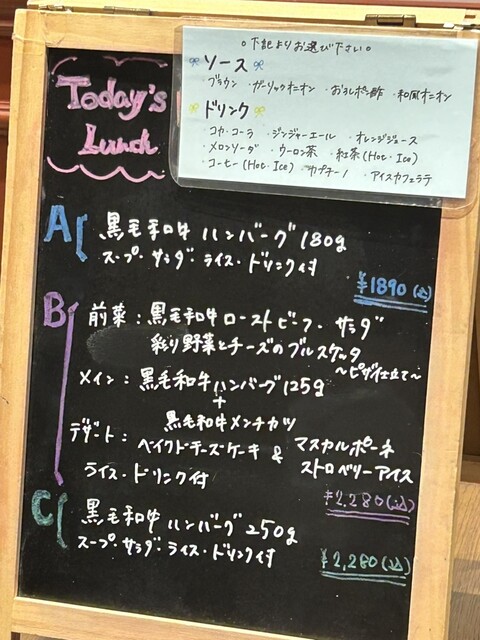 。下記よりお選び下さい。
ソース
・ブラウン ・ガーリックオニオン ・おろしポン酢 ・和風オニオン
ドリンク
・コカ・コーラ ・ジンジャーエール ・オレンジジュース
・メロンソーダ ・ウーロン茶 ・紅茶(Hot・Ice)
・コーヒー(Hot・Ice) ・カプチーノ ・アイスカフェラテ
Today's
Lunch
A 黒毛和牛ハンバーグ180g
スープ・サラダ・ライス・ドリンク付
¥1890(込)
B 前菜:黒毛和牛ローストビーフ・サラダ
彩り野菜とチーズのブルスケッタ
〜ピザ仕立て〜
メイン:黒毛和牛ハンバーグ125g
+
黒毛和牛メンチカツ
デザート:ベイクドチーズケーキ & マスカルポーネ
ストロベリーアイス
ライス・ドリンク付
¥2,280(込)
C 黒毛和牛ハンバーグ250g
スープ・サラダ・ライス・ドリンク付
¥2,280(込)